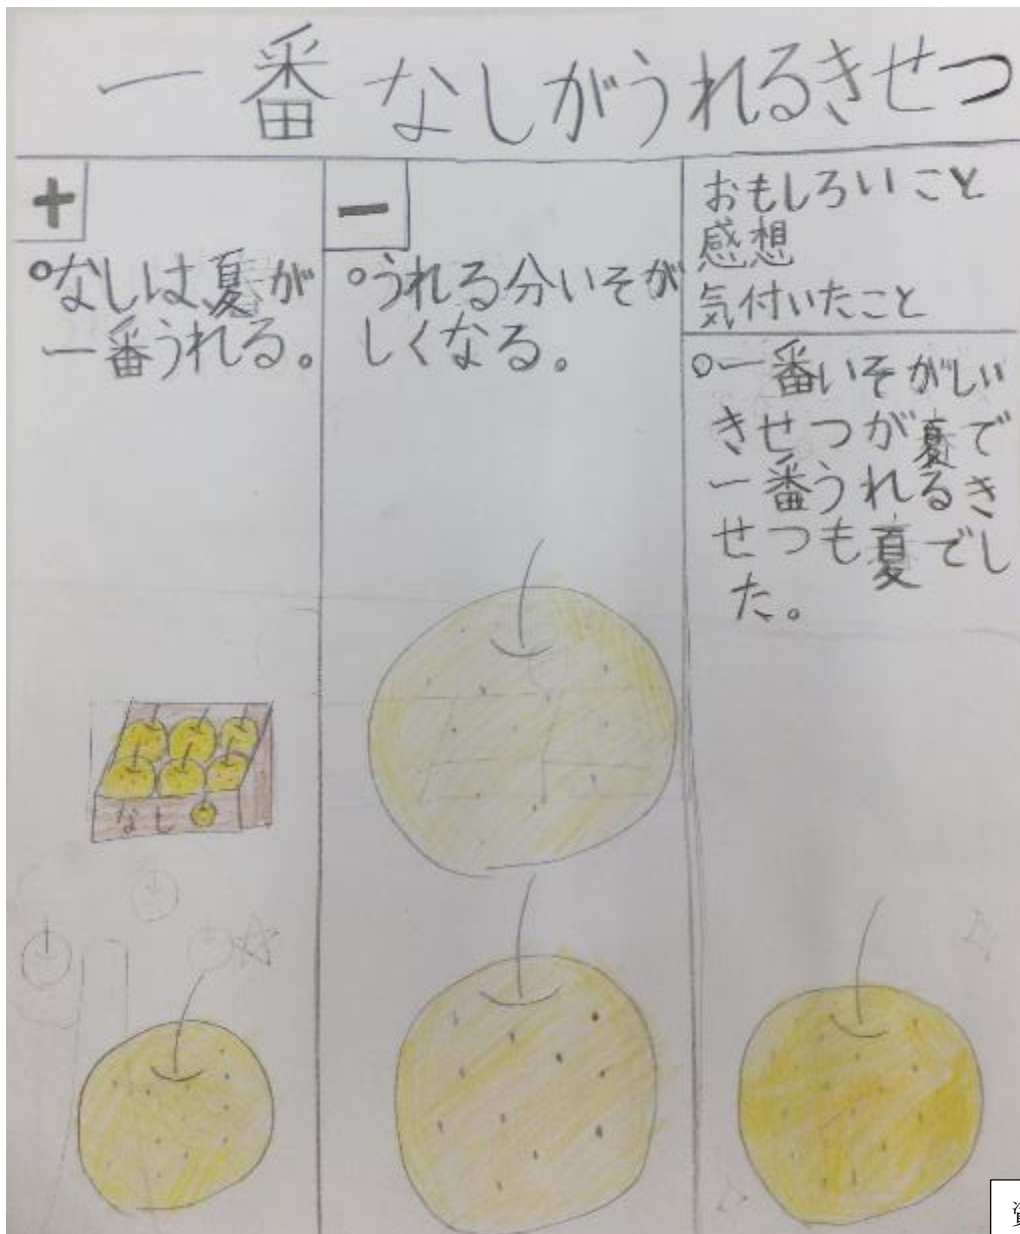 一番なしがうれるきせつ
+
°なしは夏が
一番うれる。
−
°うれる分いそが
しくなる。
おもしろいこと
感想
気付いたこと
°一番いそがしい
きせつが夏で
一番うれるき
せつも夏でし
た。
なし